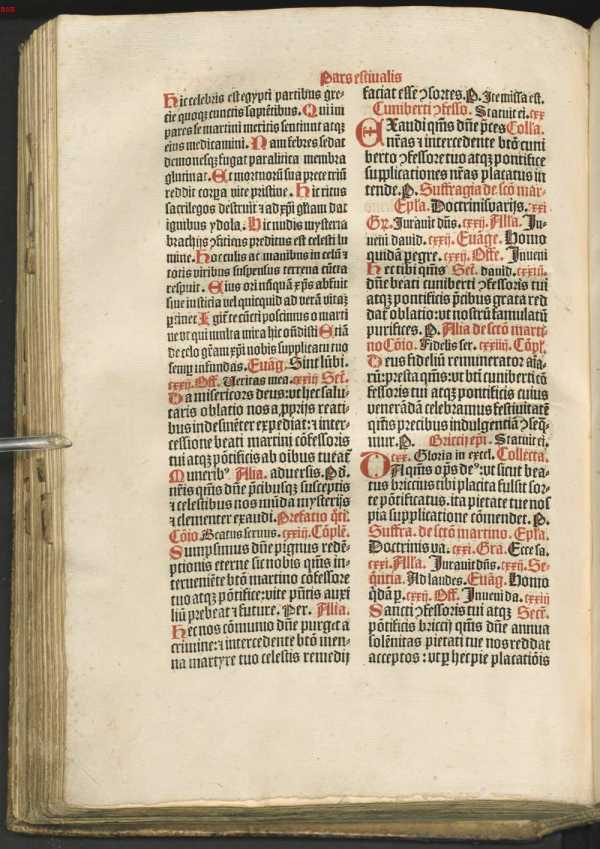 Pars estiualis
Hic celebris est egypti partibus gre-
cie quoqȝ cunctis sapiẽtibus. Qui im
pares se martini meritis sentiunt atqȝ
eius medicamini. Nam febres sedat
demonesqȝ fugat paralitica membra
glutinat. Et mortuorũ sua prece triũ
reddit corpa vite pristine. Hic ritus
sacrilegos destruit ⁊ ad xp̃i gl̃iam dat
ignibus ydola. Hic nudis mysteria
brachijs ↄficiens preditus est celesti lu
mine. Hic oculis ac manibus in celũ ⁊
totis viribus suspensus terrena cũcta
respuit. Eius ori nũquã xp̃s abfuit
siue iusticia vel quicquid ad verã vitaȝ
ptinet Igit̃ te cũcti poscimus o marti
ne vt qui multa mira hic oñdisti Etiã
de celo gr̃am xp̃i nobis supplicatu tuo
semꝑ infundas. Euãg. Sint lũbi.
cxxij. Off. Veritas mea. cxxiij Sec̃.
Da misericors deus: vt hec salu-
taris oblatio nos a ꝓprijs reati-
bus indesinẽter expediat: ⁊ inter-
cessione beati martini cõfessoris
tui atqȝ põtificis ab oĩbus tueat̃
Munerib⁹. Alia. aduersis. P̃.
nr̃is qũs dñe p̃cibusqȝ susceptis
⁊ celestibus nos mũda mysterijs
⁊ clementer exaudi. Prefatio q̃ti.
Cõio Beatus seruus. cxxiij. Cõplẽ.
Sumpsimus dñe pignus redẽ-
ptionis eterne sic nobis qũs in-
terueniẽte btõ martino cõfessore
tuo atqȝ põtifice: vite p̃ntis auxi
liũ prebeat ⁊ future. Per. Alia.
Hec nos cõmunio dñe purget a
crimine: ⁊ intercedente btõ men-
na martyre tuo celestis remedij
faciat esse ↄsortes. P. Ite missa est.
Cuniberti ↄfesso. Statuit ei. cxx
Exaudi qũs dñe p̃ces Colla.
nr̃as ⁊ intercedente btõ cuni
berto ↄfessore tuo atqȝ pontifice
supplicationes nr̃as placatus in
tende. P. Suffragia de sctõ mar-
Epl̃a. Doctrinis varijs. cxxi
Gr. Jurauit dñs. cxxij. Alla. In-
ueni dauid. cxxij. Euãge. Homo
quidã pegre. cxxij. Offe. Inueni
Hec tibi qũs Sec̃. dauid. cxxiij.
dñe beati cuniberti ↄfessoris tui
atqȝ pontificis p̃cibus grata red
dat̃ oblatio: vt nostrũ famulatũ
purifices. P. Alia de sctõ marti-
no Cõio. Fidelis ser. cxxiiij. Cõpl̃.
Deus fideliũ remunerator aĩa-
rũ: presta qũs: vt btĩ cuniberti cõ
fessoris tui atqȝ pontificis cuius
venerãdã celebramus festiuitatẽ
qũs precibus indulgentiã ↄseq̃-
mur. P. Briccij ep̃i. Statuit ei.
cxx. Gloria in excel. Collecta.
Da qũs oр̃s de⁹: vt sicut bea-
tus briccius tibi placita fulsit sor-
te põtificatus. ita pietate tue nos
pia supplicatione cõmendet. P.
Suffra. de sctõ martino. Epl̃a.
Doctrinis va. cxxi. Gra. Ecce sa.
cxxi. Alla. Jurauit dñs. cxxij. Se-
q̃ntia. Ad laudes. Euãg. Homo
qdã p. cxxij. Off. Inueni da. cxxiij
Sancti ↄfessoris tui atqȝ Secr̃.
põtificis briccij qũs dñe annua
solẽnitas pietati tue nos reddat
acceptos: vt ꝑ hec pie placatiõis